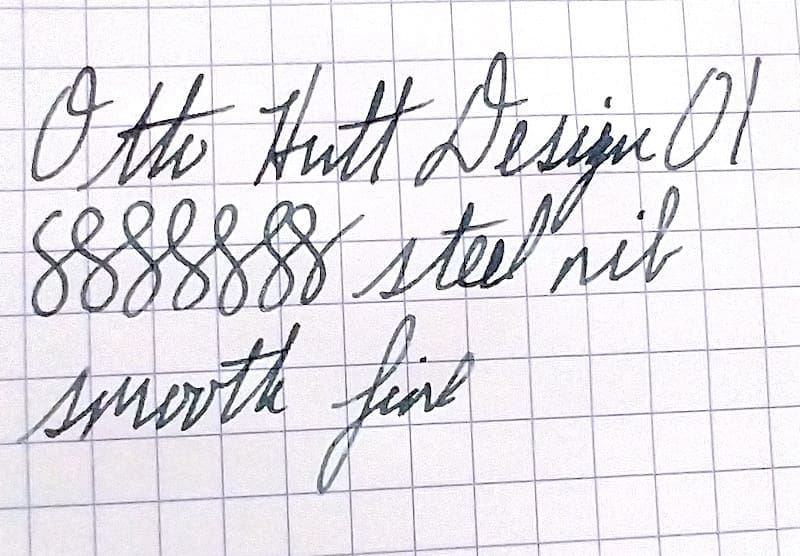 Otto Hutt Design 01
8888888 steel nib
smooth fine